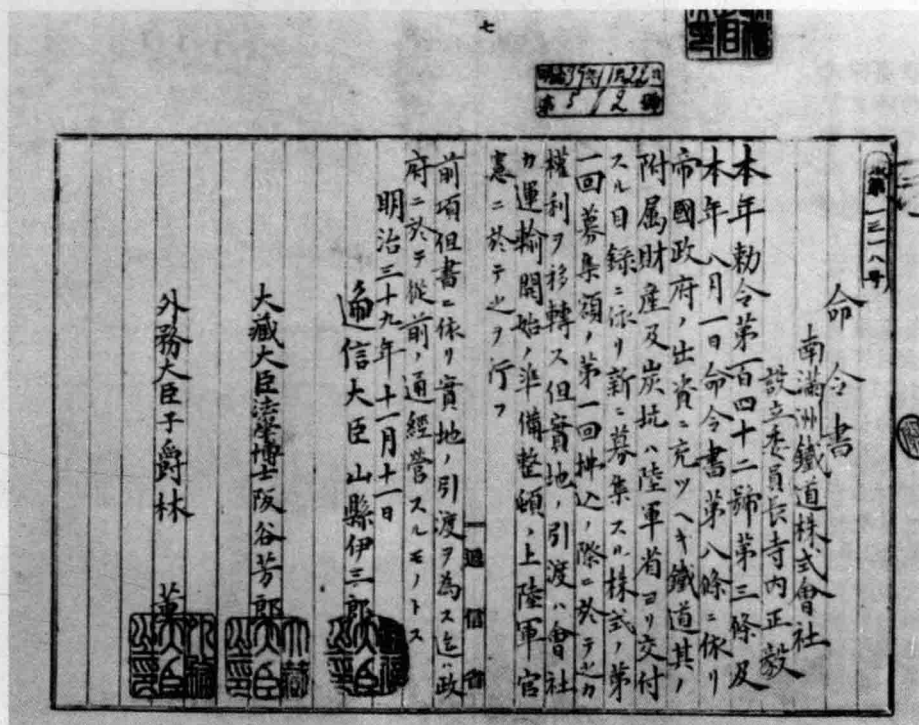 七
明治39年11月22日
第512號
第一三一八号
命令書
南滿洲鐵道株式會社
設立委員長寺内正毅
本年勅令第百四十二號第三條及
本年八月一日命令書第八條ニ依リ
帝國政府ノ出資ニ充ツヘキ鐵道其ノ
附属財産及炭坑ハ陸軍省ヨリ交付
スル目録ニ依リ新ニ募集スル株式ノ第
一回募集額ノ第一回拂込ノ際ニ於テ之カ
權利ヲ移轉ス但實地ノ引渡ハ會社
カ運輸開始ノ準備整頓ノ上陸軍官
憲ニ於テ之ヲ行フ
前項但書ニ依リ實地ノ引渡ヲ為ス迄ハ政
府ニ於テ從前ノ通經營スルモノトス
明治三十九年十一月十一日
遞信大臣 山縣伊三郎
大藏大臣法學博士阪谷芳郎
外務大臣子爵林 董
遞信省